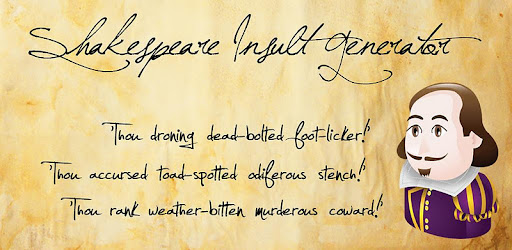 Shakespeare Insult Generator
'Thou droning dead-bolted foot-licker!'
'Thou accursed toad-spotted odiferous stench!'
'Thou rank weather-bitten murderous coward!'